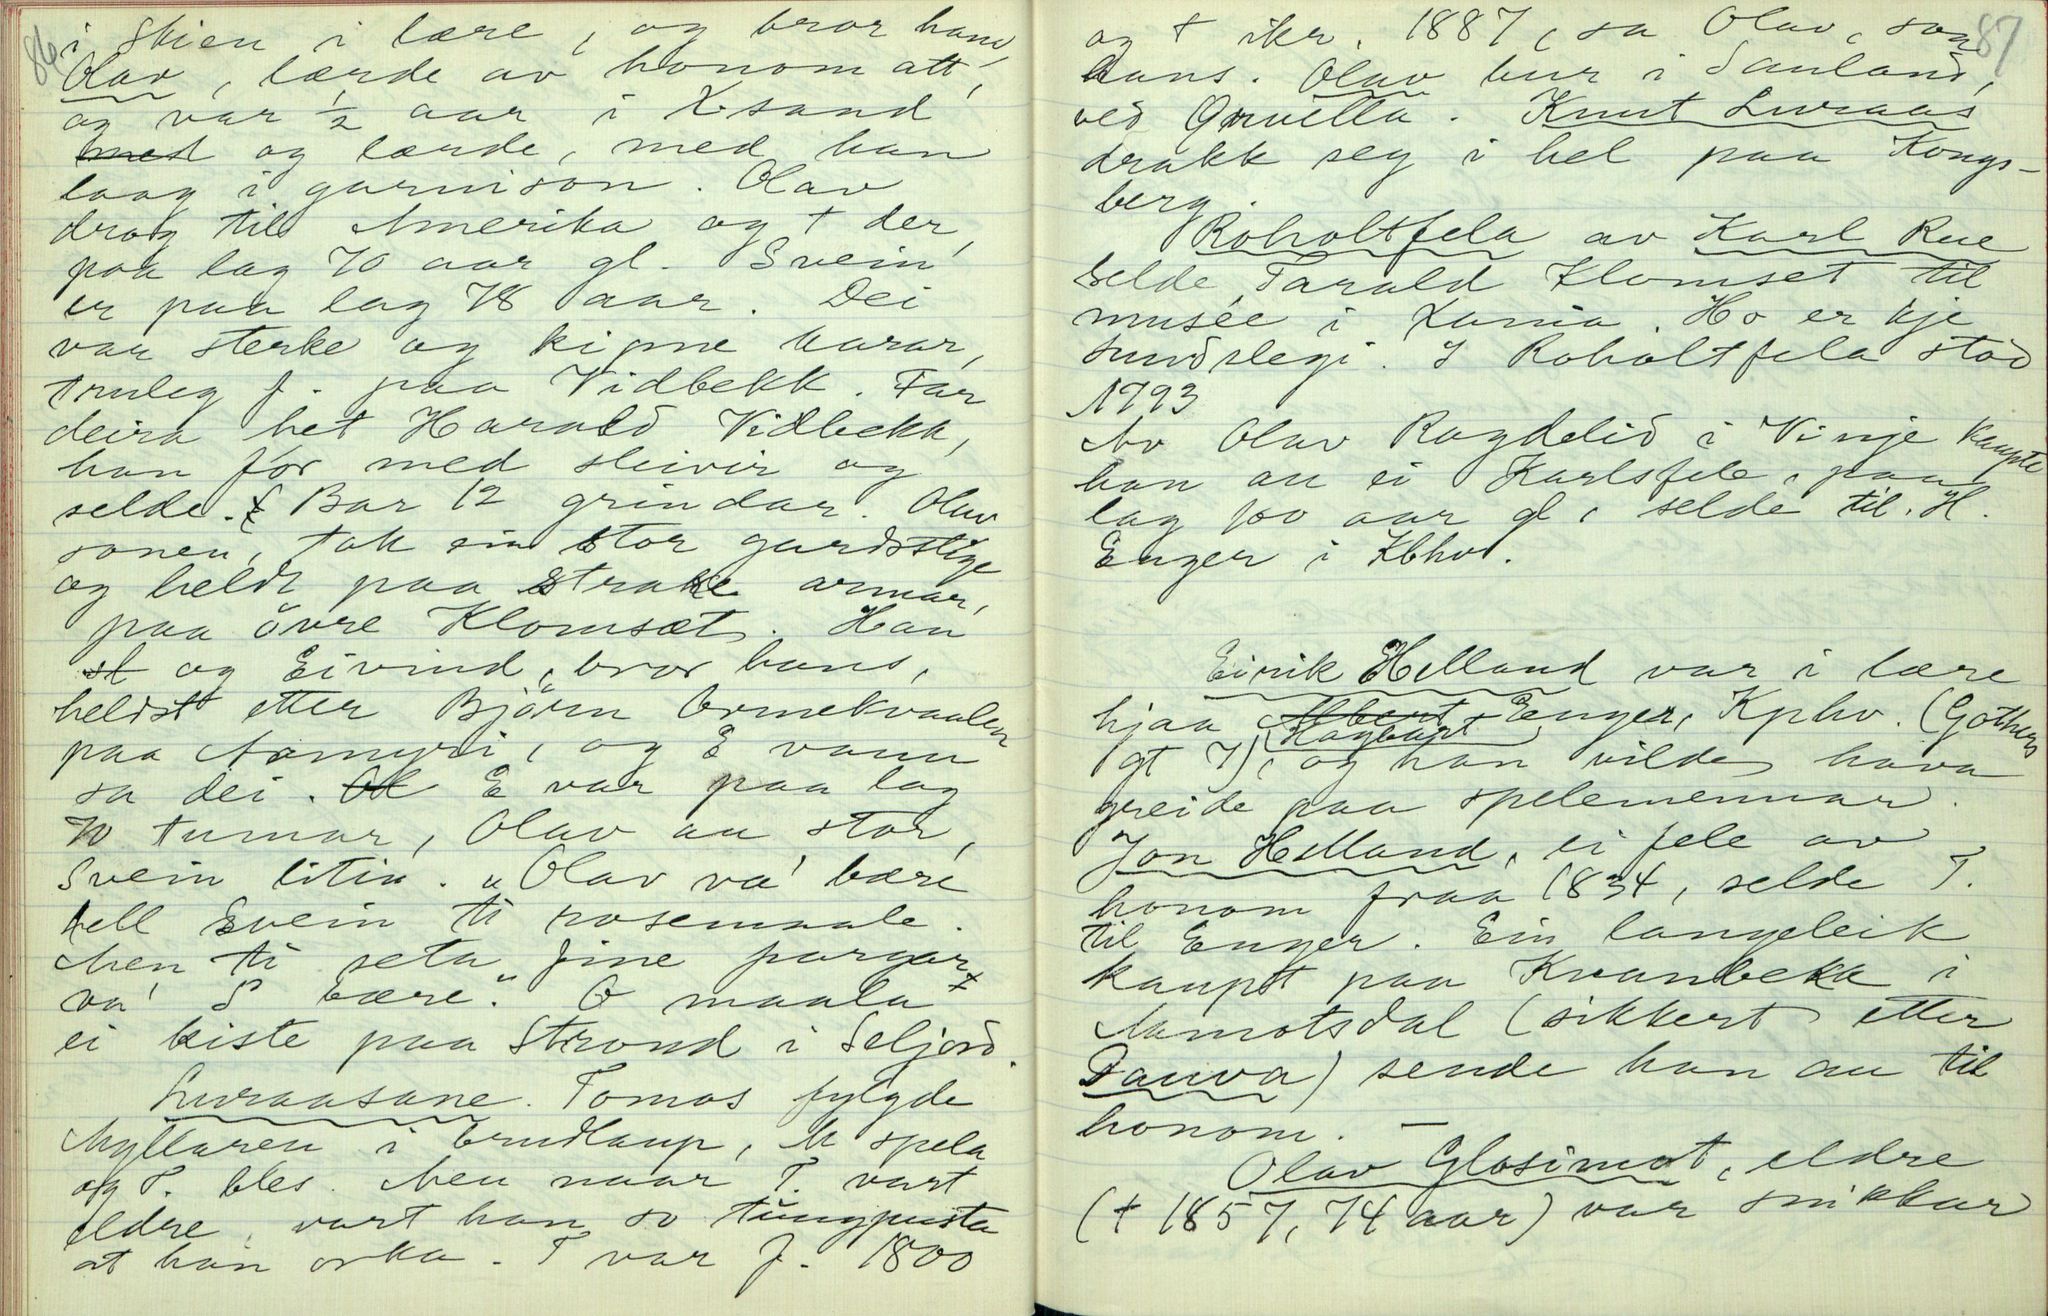 86
i Skien i lære, og bror hans,
Olav, lærde av honom att,
og var ½ aar i X.sand
med og lærde, med han
laag i garnison. Olav
drog til Amerika og † der,
paa lag 70 aar gl. Svein
er paa lag 78 aar. Dei
var sterke og kipne karar,
truleg f. paa Vidbekk. Far
deira het Harald Vidbekk,
han for med sleivir og
selde. Bar 12 grindar. Olav
sonen, tok ein stor gardsstige
og heldt paa strake armar,
paa övre Klomset. Han
st og Eivind, bror hans,
heldst etter Björn Ormekvaalen
paa Aamyri, og E vann
sa dei. Ol E var paa lag
70 tumar, Olav au stor,
Svein litin. "Olav va' bære
hell Svein ti rosemaale.
Men ti seta fine fargar
va' S bære." O maala
ei kiste paa Strond i Seljord.
Luraasane. Tomas fylgde
Myllaren i brudlaup, M spela
og T. bles. Men naar T. vart
eldre, vart han so tungpusta
at han orka. T var f. 1800
87
og † ikr. 1887, sa Olav, son
hans. Olav bur i Sauland,
ved Orvella. Knut Luraas
drakk seg i hel paa Kongs-
berg.
Roholtfela av Karl Rue
selde Tarald Klomset til
musée i Xania. Ho er kje
sundslegi. I Roholtfela stod
1793
Av Olav Ragdelid i Vinje kaupte
han au ei Karlsfele, paa
lag 100 aar gl, selde til. H.
Enger i Kbhv.
Eirik Helland var i lære
hjaa Albert Enger, Kphv. (Gothers
gt 7), Hagbart og han vilde hava
greide paa spelemennar.
Jon Helland, ei fele av
honom fraa 1834, selde T.
til Enger. Ein langeleik
kaupt paa Kvanbekk i
Aamotsdal (sikkert etter
Dauva) sende han au til
honom. —
Olav Glosimot, eldre
(† 1857, 74 aar) var snikkar